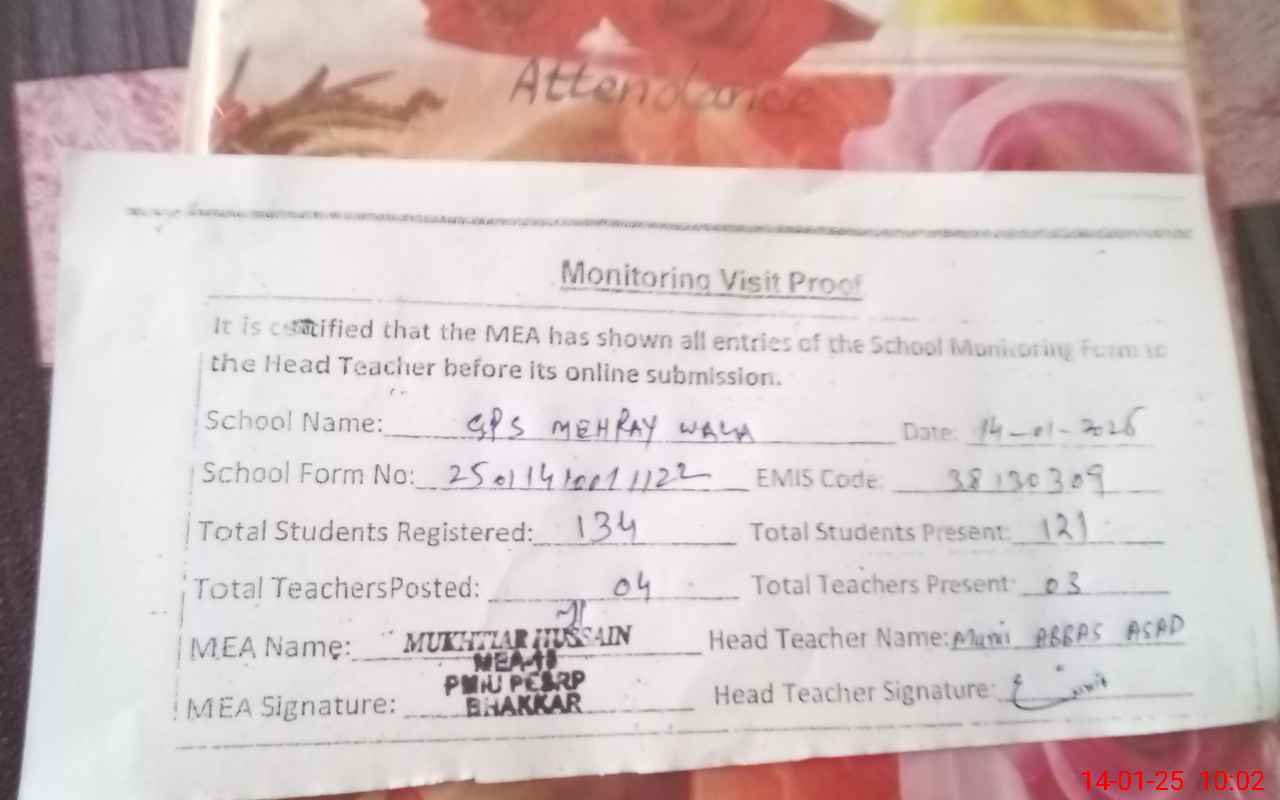 Attendance
Monitoring Visit Proof
It is certified that the MEA has shown all entries of the School Monitoring Form to
the Head Teacher before its online submission.
School Name: GPS MEHRAY WALA Date: 14-01-2025
School Form No: EMIS Code: 38130309
Total Students Registered: 134 Total Students Present: 121
Total TeachersPosted: 04 Total Teachers Present: 03
MEA Name: MUKHTIAR HUSSAIN Head Teacher Name: ABBAS ASAD
PMIU PESRP
MEA Signature: BHAKKAR Head Teacher Signature:
14-01-25 10:02